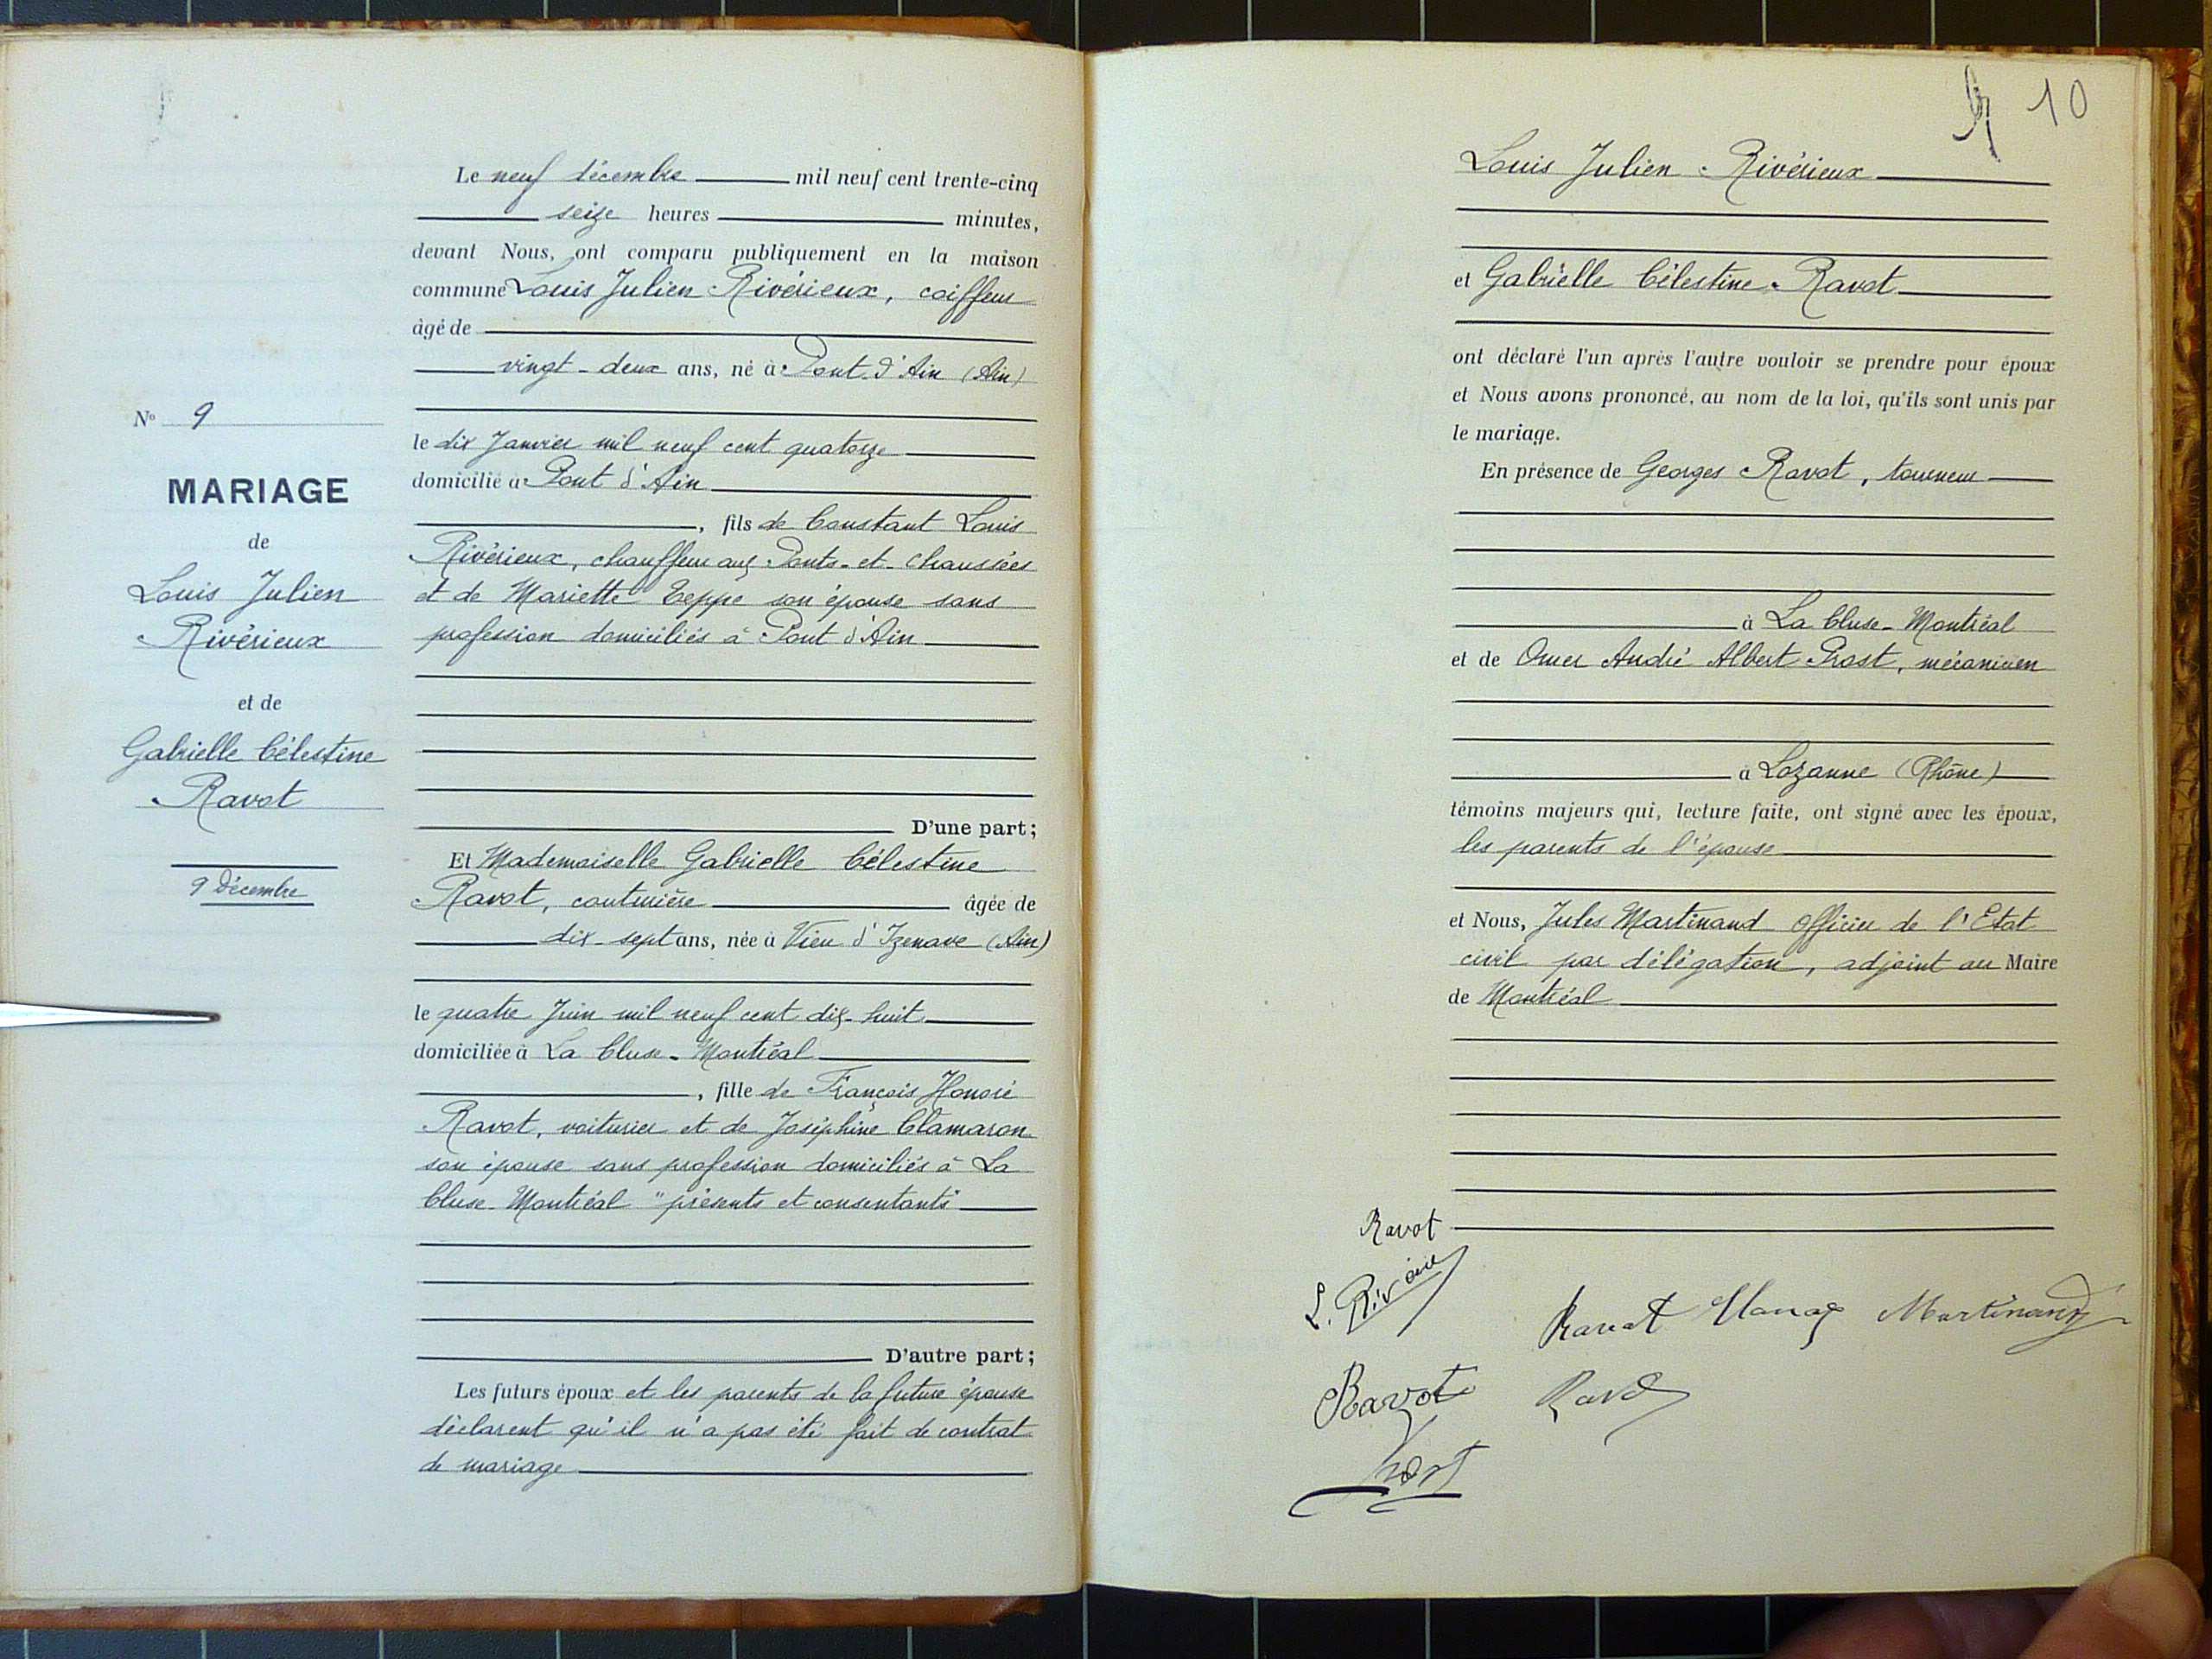 Le neuf décembre mil neuf cent trente-cinq
seize heures minutes,
devant Nous, ont comparu publiquement en la maison
commune Louis Julien Rivérieux, coiffeur
âgé de
vingt-deux ans, né à Pont d'Ain (Ain)
le dix Janvier mil neuf cent quatorze
domicilié à Pont d'Ain
, fils de Constant Louis
Rivérieux, chauffeur aux Ponts-et-Chaussées
et de Mariette Teppe son épouse sans
profession domiciliés à Pont d'Ain
D'une part;
Et Mademoiselle Gabrielle Célestine
Ravot, couturière âgée de
dix-sept ans, née à Vieu d'Izenave (Ain)
le quatre Juin mil neuf cent dix-huit
domiciliée à La Cluse-Montréal
, fille de François Honoré
Ravot, voiturier et de Joséphine Clamaron
son épouse sans profession domiciliés à La
Cluse-Montréal "présents et consentants
D'autre part;
Les futurs époux et les parents de la future épouse
déclarent qu'il n'a pas été fait de contrat
de mariage
No 9
MARIAGE
de
Louis Julien
Rivérieux
et de
Gabrielle Célestine
Ravot
9 Décembre
10
Louis Julien Rivérieux
et Gabrielle Célestine Ravot
ont déclaré l'un après l'autre vouloir se prendre pour époux
et Nous avons prononcé, au nom de la loi, qu'ils sont unis par
le mariage.
En présence de Georges Ravot, tourneur
à La Cluse-Montréal
et de Omer André Albert Prost, mécanicien
à Lozanne (Rhône)
témoins majeurs qui, lecture faite, ont signé avec les époux,
les parents de l'épouse
et Nous, Jules Martinand Officier de l'Etat
civil par délégation, adjoint au Maire
de Montréal
Ravot
Ravot Martinand
Ravot
Prost